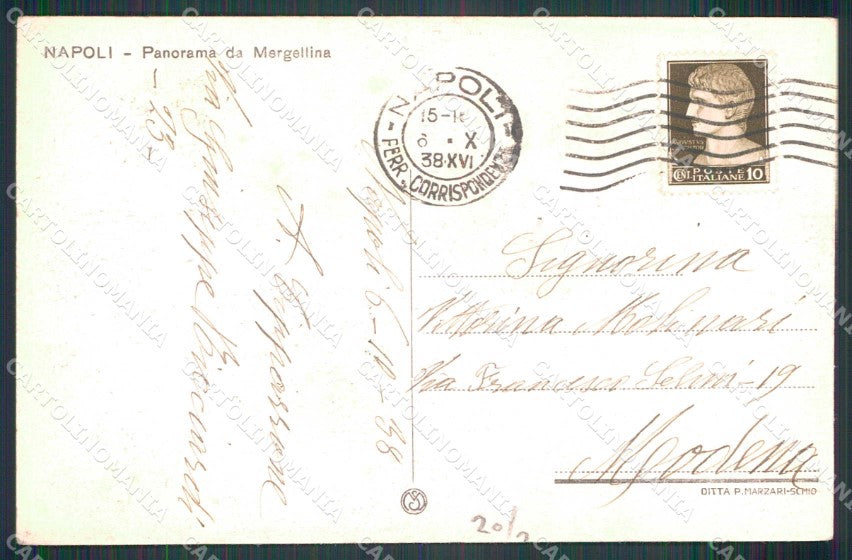 NAPOLI - Panorama da Mergellina
NAPOLI
15-1
6 . X
38·XVI
FERR. CORRISPONDENZE
CENT. POSTE ITALIANE 10
Signorina
Vittorina Molinari
Via Francesco Selmi-19
Modena
DITTA P. MARZARI-SCHIO
Napoli 6-10-38
Via Giuseppe
20/2
CARTOLINOMANIA